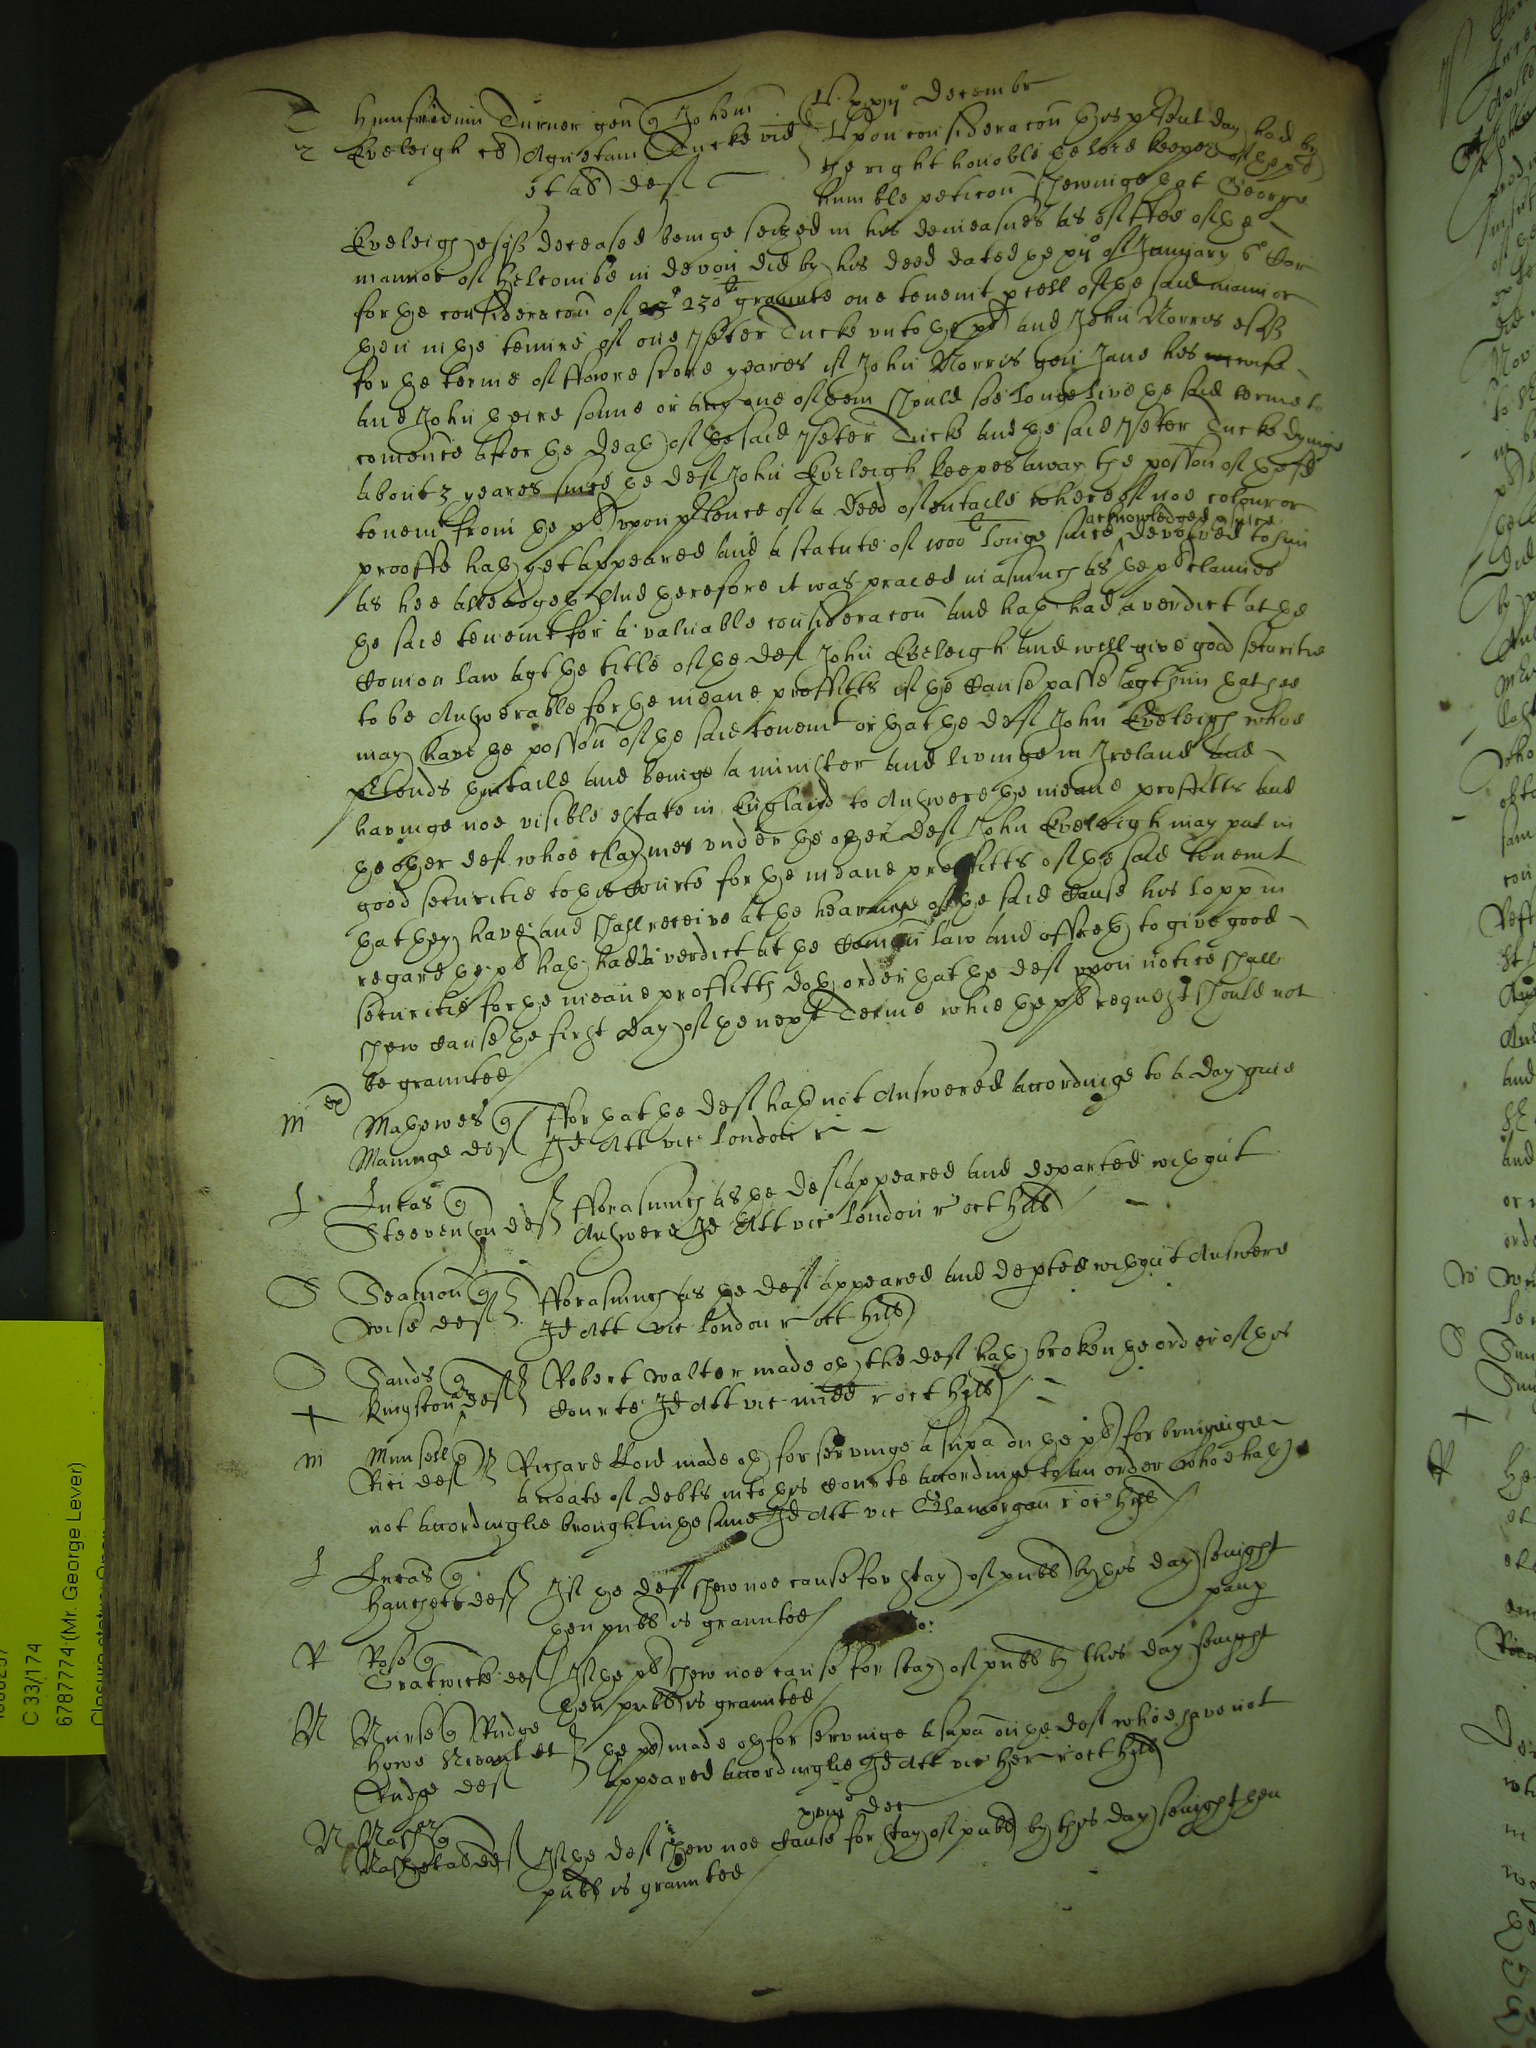 Humfridum Turner gen q Johem
Eveleigh cler Agnetam Tucke vid
et al def
xxij° Decembr
Upon consideracon this psent day had by
the right honoble the lord keeper of the plt
humble peticon shewinge that George
Eveleigh esqr deceased beinge seized in his demeasnes as of ffee of the
mannor of Holcombe in Devon did by his deed dated the of January 6° Car
for the consideracon of 230l graunte one tenemt pcell of the said mannor
then in the tenure of one Peter Tucke unto the plt and John Norris esqr
for the terme of ffowre score yeares if John Norris gen Jane his wife
and John theire sonne or any one of them should soe longe live the said terme to
comence after the death of the said Peter Tucke and the said Peter Tucke dyinge
about 3 yeares since the def John Eveleigh keepes away the posson of the sd
tenemt from the plt upon ptence of a deed of entaile whereof noe colour or
prooffe hath yet appeared and a statute of 1000l longe since acknowledged & since devolved to him
as hee alledgeth And therefore it was praied in asmuch as the plt claimes
the said tenemt for a valuable consideracon and hath had a verdict at the
Comon law agt the title of the def John Eveleigh and will give good securitie
to be Answerable for the meane proffitts if the Cause passe agt him that hee
may have the posson of the said tenemt or that the def John Eveleigh whoe
ptends the entaile and beinge a minister and livinge in Ireland and
havinge noe visible estate in England to Answere the meane proffitts and
the other def whoe claymes under the other def John Eveleigh may put in
good securitie to this Courte for the meane proffitts of the said tenemt
that they have and shall receive at the hearinge of the said Cause his lopp in
regard the plt hath had a verdict at the Comon law and offreth to give good
securitie for the meane proffitts doth order that the def upon notice shall
shew cause the first day of the next Terme whie the plt request should not
be graunted
M Mathewes q
Maninge def
ffor that the def hath not Answered accordinge to a day given
Id Att vic London r
L Lucas q
Steevenson def
fforasmuch as the def appeared and departed without
Answere Id Att vic London r oct Hill
S Seamon q
Wise def
fforasmuch as the def appeared and depted without Answere
Id Att vic London r oct Hill
S Sands q
Kingston def
Robert Walter made oth the def hath broken the order of this
Courte Id Att vic Midd r oct Hill
M Munsell q
Rici def
Richard Lord made oth for servinge a supa on the plt for bringinge
a noate of debts into this Courte accordinge to an order whoe hath
not accordinglie brought in the same Id Att vic Glamorgan r oct Hill
L Lucas q
Hanchett def
If the def shew noe cause for stay of publ by this day senight
then publ is graunted
paup
R Rose q
Gratwicke def
If the plt shew noe cause for stay of publ by this day senight
then publ is graunted
N Nurse q Rudge
Howe Nicoll et
Rudge def
the plt made oth for servinge a supa on the def whoe have not
appeared accordinglie Id Att vic Her r oct Hill
Dec
Na Nash q
def
If the def shew noe Cause for stay of publ by this day senight then
publ is graunted
C 33/174
6787774 (Mr. George Lever)